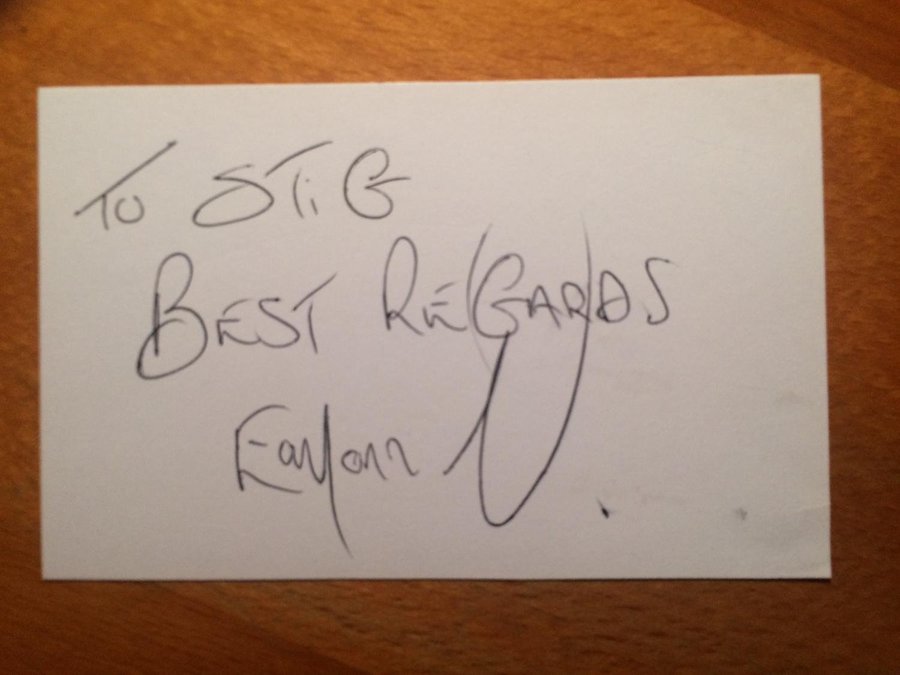 To STiG
BEST REGARDS
Eamonn